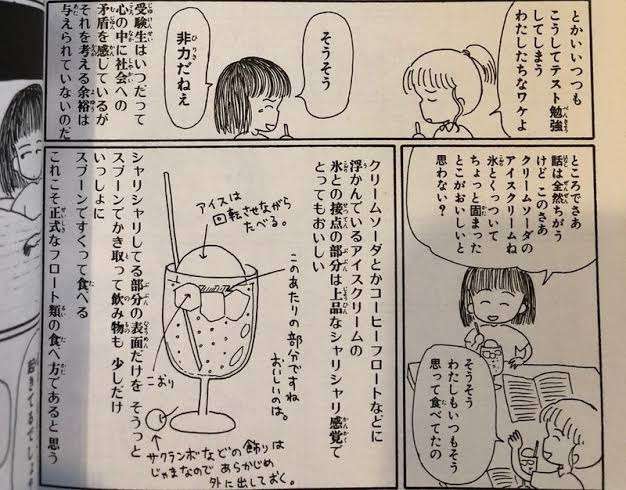 とかいいつつも
こうしてテスト勉強
してしまう
わたしたちなワケよ
そうそう
非力だねえ
受験生はいつだって
心の中に社会への
矛盾を感じているが
それを考える余裕は
与えられていないのだ
ところでさあ
話は全然ちがう
けど このさあ
クリームソーダの
アイスクリームね
氷とくっついて
ちょっと固まった
とこがおいしいと
思わない?
そうそう
わたしもいつもそう
思って食べてたの
クリームソーダとかコーヒーフロートなどに
浮かんでいるアイスクリームの
氷との接点の部分は上品なシャリシャリ感覚で
とってもおいしい
アイスは
回転させながら
たべる。
このあたりの部分ですね
おいしいのは。
こおり
サクランボなどの飾りは
じゃまなので あらかじめ
外に出しておく。
シャリシャリしてる部分の表面だけを そうっと
スプーンでかき取って飲み物も 少しだけ
いっしょに
スプーンですくって食べる
これこそ正式なフロート類の食べ方であると思う